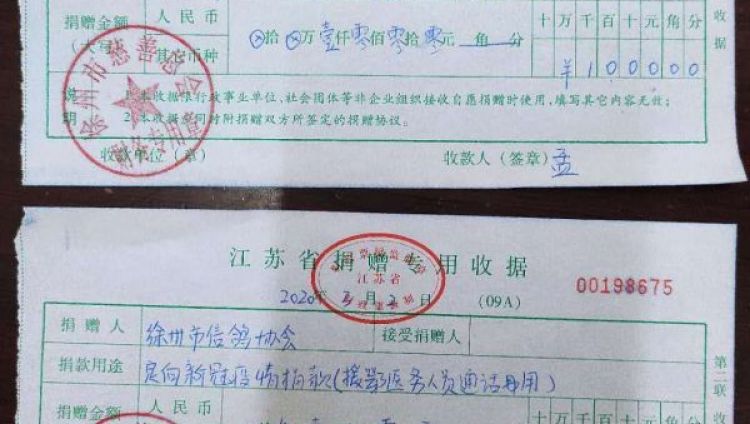 捐赠金额
(大写)
人民币
其它币种
⊗拾⊗万壹仟零佰零拾零元 角 分
十万千百十元角分
¥100000
收据
徐州市慈善总会
说明
1.本收据限行政事业单位,社会团体等非企业组织接收自愿捐赠时使用,填写其它内容无效;
2.本收据应同时附捐赠双方所签定的捐赠协议。
收款单位(章)
收款人(签章)孟
江苏省捐赠专用收据
江苏省
2020年3月2日
(09A)
00198675
捐赠人
徐州市信鸽协会
接受捐赠人
捐款用途
定向新冠疫情捐款(援鄂医务人员通话费用)
捐赠金额
人民币
十万千百十元角分
第二联
收